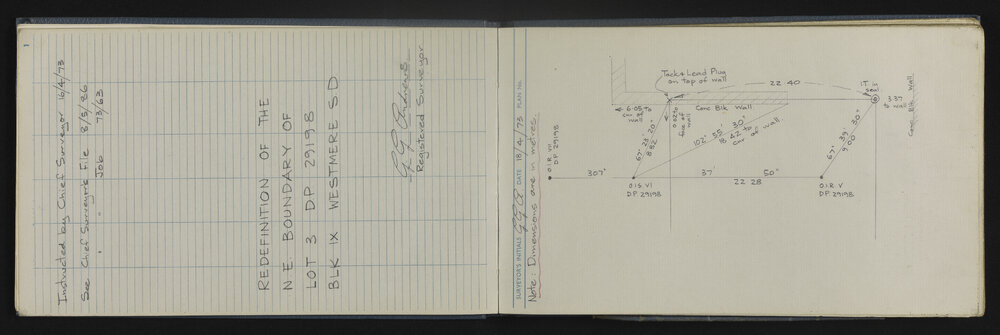 1
Instructed by Chief Surveyor 16/4/73
See Chief Surveyor's File 8/3/86
" " Job 73/63
REDEFINITION OF THE
N.E. BOUNDARY OF
LOT 3 DP 29198
BLK IX WESTMERE SD
G G Andrews
Registered Surveyor
SURVEYOR'S INITIALS G.G.A DATE 18/4/73 PLAN No.
Note: Dimensions are in metres.
Tack & Lead Plug
on top of wall
22 40
IT in
seal
3.37
to wall
Conc Blk Wall
6.05 to
cnr of
wall
Conc Blk Wall
0.02 to
face of
wall
67° 23' 20"
8 52
102° 55' 30"
18 42 to
cnr of wall
67° 39' 30"
9.00
O.I.R VII
D.P. 29198
307°
37'
50"
22 28
O.I.S VI
D.P. 29198
O.I.R V
D.P. 29198